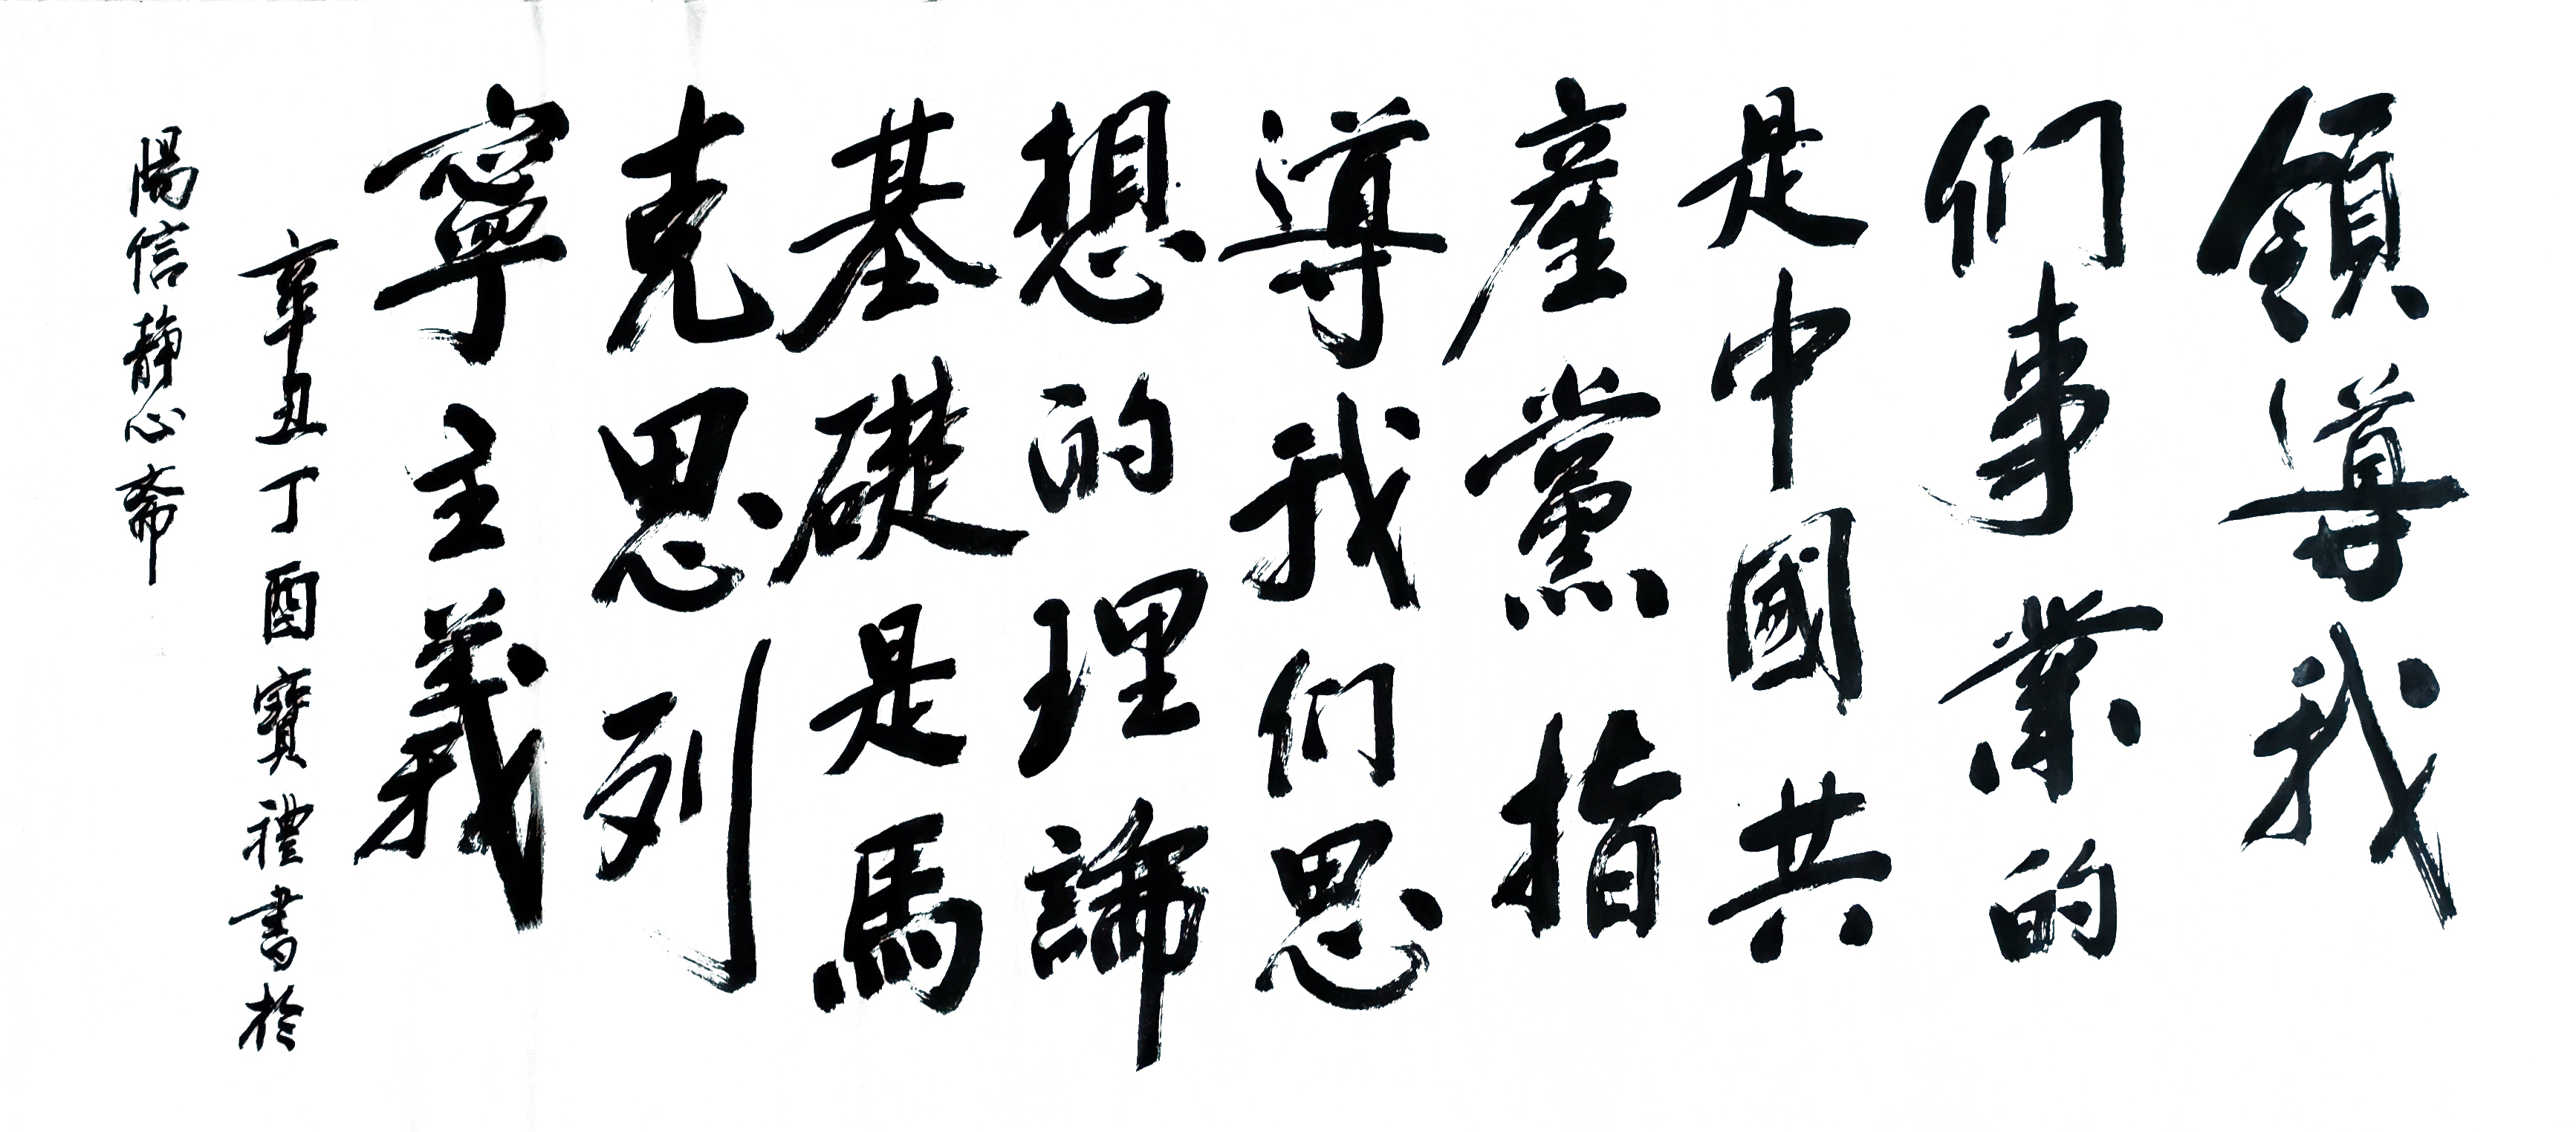 領導我
们事業的
是中國共
産黨指
導我们思
想的理論
基礎是馬
克思列
寧主義
辛丑丁酉寶禮書於
陽信靜心齋